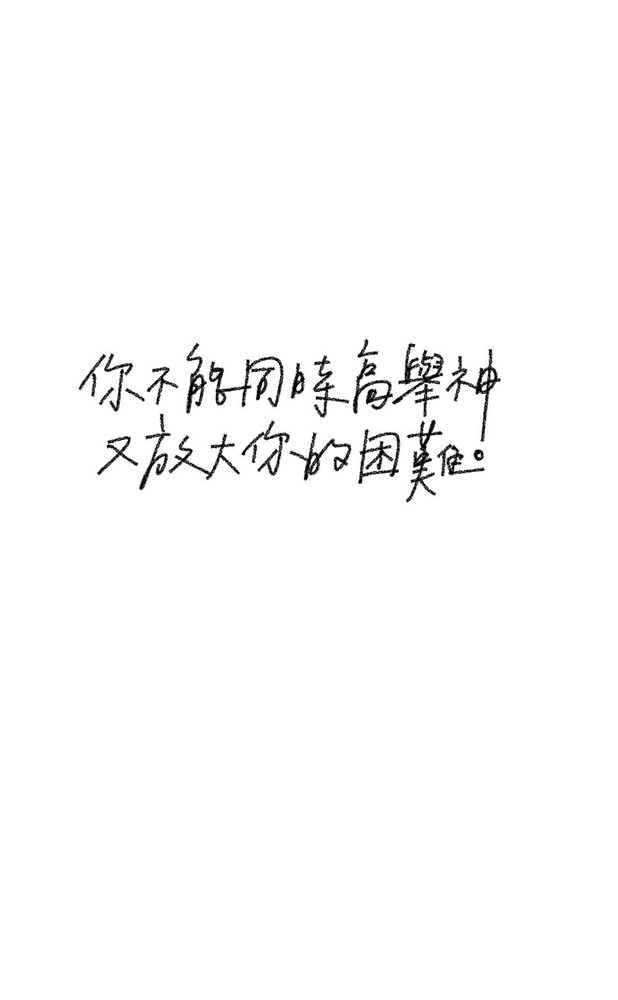 你不能同時高舉神
又放大你的困難。